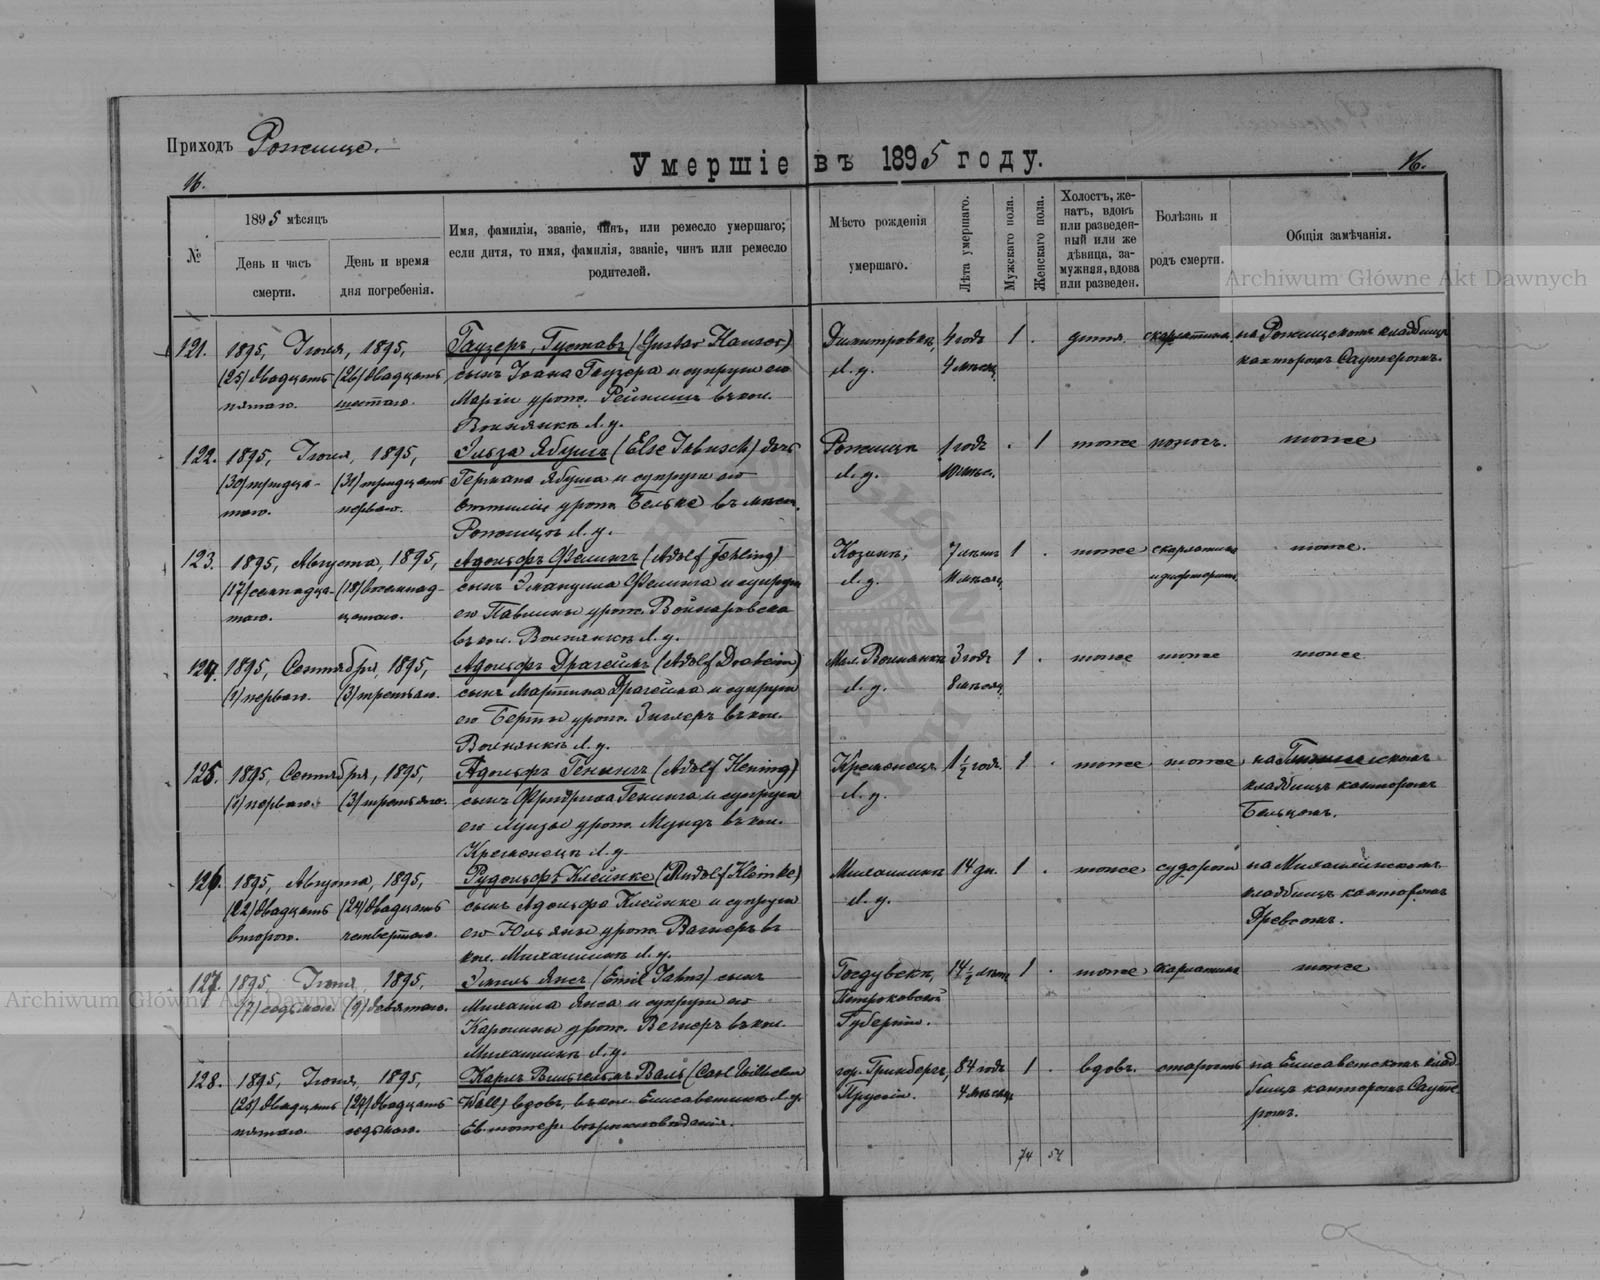 Приходъ Рожище.
Умершіе въ 1895 году.
16.
16.
№
1895 мѣсяцъ
День и часъ смерти.
День и время дня погребенія.
Имя, фамилія, званіе, чинъ, или ремесло умершаго;
если дитя, то имя, фамилія, званіе, чинъ или ремесло
родителей.
Мѣсто рожденія
умершаго.
Лѣта умершаго.
Мужскаго пола.
Женскаго пола.
Холостъ, же-
натъ, вдовъ
или разведен-
ный или же
дѣвица, за-
мужняя, вдова
или разведен.
Болѣзнь и
родъ смерти.
Общія замѣчанія.
Archiwum Główne Akt Dawnych
121. 1895, Іюля, 1895, Гаузеръ, Густавъ (Gustav Hauser) Димитровка, 4 годъ 1 . дитя скарлатина на Рожищскомъ кладбищѣ
(25) двадцать (26) двадцать сынъ Іоана Гаузера и супруги его Л. у. 4 мѣсяц. канторомъ Саутеромъ.
пятаго. шестаго. Маріи урож. въ кол.
Волнянкѣ Л. у.
122. 1895, Іюля, 1895, Эльза Ябушъ (Else Jabusch) дочь Рожище 1 годъ . 1 тоже поносъ. тоже
(30) тридца- (31) тридцать Германа Ябуша и супруги его Л. у. 10 мѣс.
таго. перваго. Оттиліи урож. Бельке въ мѣст.
Рожищѣ Л. у.
123. 1895, Августа, 1895, Адольфъ Фелингъ (Adolf Fehling) Козинъ, 7 лѣтъ 1 . тоже скарлатина тоже.
(17) семнадца- (18) восемнад- сынъ Эмануила Фелинга и супруги Л. у. 11 мѣсяц.
таго. цатаго. его Павлины урож. Войнаровска
въ кол. Волнянкѣ Л. у.
124. 1895, Сентября, 1895, Адольфъ Драгеймъ (Adolf Draheim) Волнянка 3 годъ 1 . тоже тоже тоже
(1) перваго. (3) третьяго. сынъ Мартина Драгейма и супруги Л. у. 8 мѣсяц.
его Берты урож. Зиглеръ въ кол.
Волнянкѣ Л. у.
125. 1895, Сентября, 1895, Адольфъ Генингъ (Adolf Hening) Кременецъ 1 ½ годъ. 1 . тоже тоже на
(1) перваго. (3) третьяго. сынъ Фридриха Генинга и супруги Л. у. кладбищѣ канторомъ
его Луизы урож. Мундъ въ кол.
Кременецъ Л. у.
126. 1895, Августа, 1895, Рудольфъ Клейнке (Rudolf Kleinke) Михалинъ 14 дн. 1 . тоже судороги на Михалинскомъ
(22) двадцать (24) двадцать сынъ Адольфа Клейнке и супруги Л. у. кладбищѣ канторомъ
втораго. четвертаго. его Юльяны урож. Вагнеръ въ
кол. Михалинъ Л. у.
127. 1895, Іюня, 1895, Эмиль Янсъ (Emil Jahns) сынъ 14 ½ лѣтъ 1 . тоже скарлатина тоже
(7) седьмаго. (9) девятаго. Михаила Янса и супруги его Петроковской
Каролины урож. Вегнеръ въ кол. Губерніи.
Михалинъ Л. у.
Archiwum Główne Akt Dawnych
128. 1895, Іюня, 1895, Карлъ Вильгельмъ Валь (Carl Wilhelm гор. Гринбергъ, 84 годъ 1 . вдовъ. старость на Елисаветскомъ клад-
(25) двадцать (27) двадцать Wall) вдовъ, въ кол. Елисаветинъ Л. у. Пруссія. 4 мѣсяц. бищѣ канторомъ Сауте-
пятаго. седьмаго. Ев. лютер. вѣроисповѣданія. ромъ.
74 54